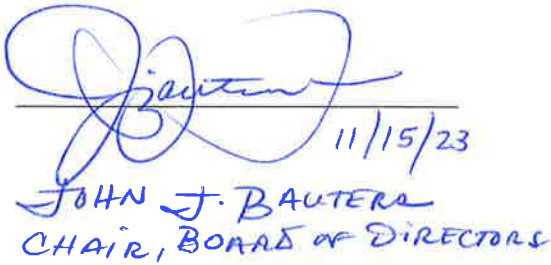 JBauters
11/15/23
JOHN J. BAUTERS
CHAIR, BOARD OF DIRECTORS